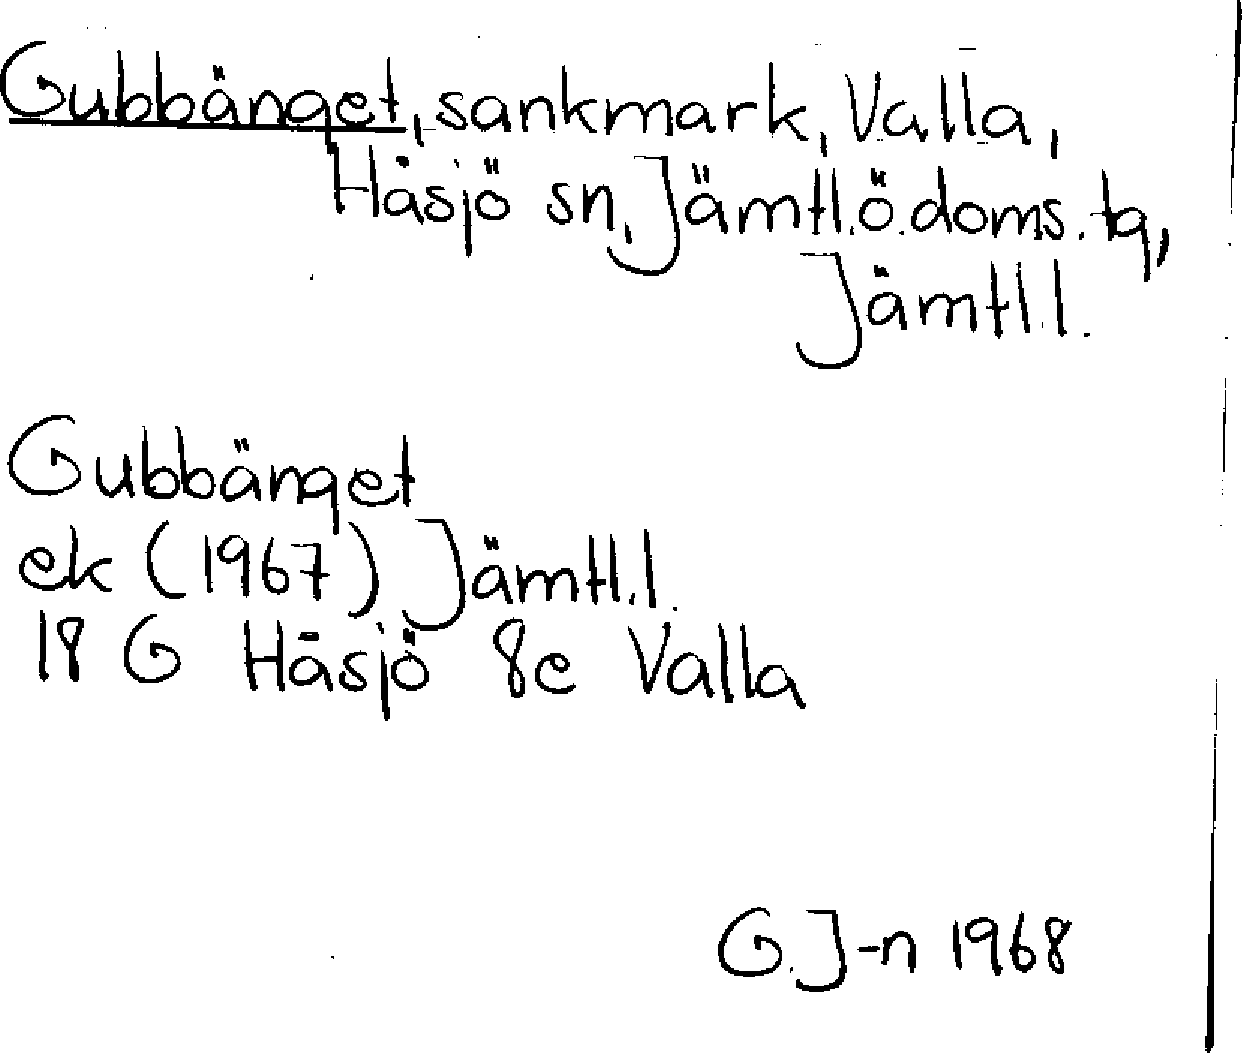 Gubbänget, sankmark, Valla,
Håsjö sn, Jämtl.ö.doms.tg,
Jämtl.l.
Gubbänget
ek (1967) Jämtl.l.
18 G Håsjö 8e Valla
G.J-n 1968